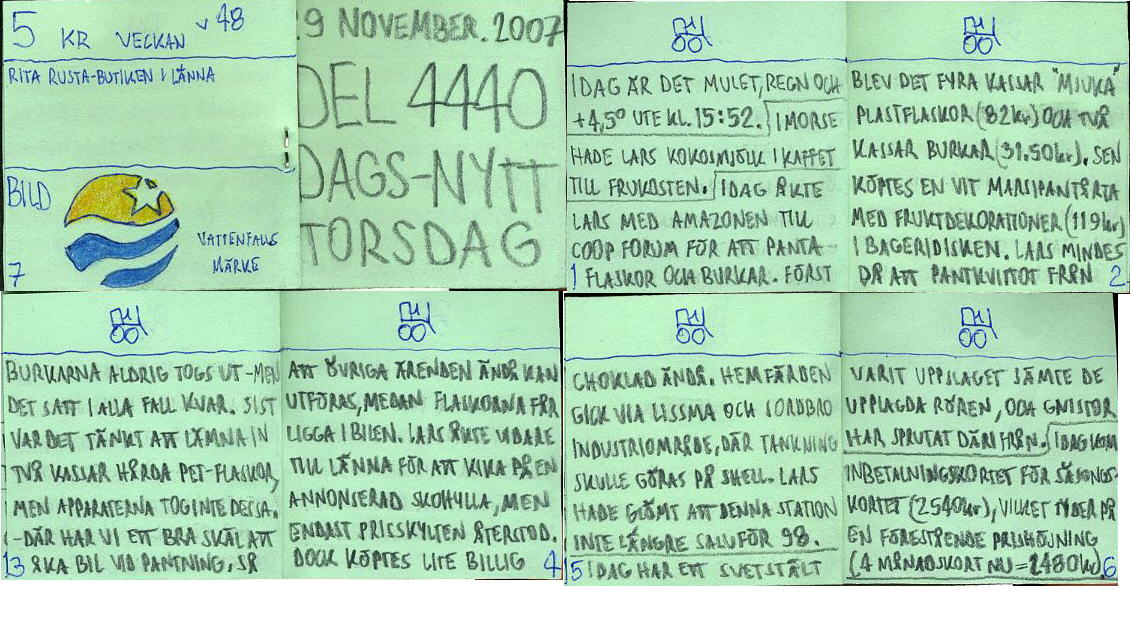 5 KR VECKAN
v 48
RITA RUSTA-BUTIKEN I LÄNNA
BILD
VATTENFALLS
MÄRKE
7
29 NOVEMBER. 2007
DEL 4440
DAGS-NYTT
TORSDAG
I DAG ÄR DET MULET, REGN OCH
+4,5° UTE KL. 15:52. I MORSE
HADE LARS KOKOSMJÖLK I KAFFET
TILL FRUKOSTEN. IDAG ÅKTE
LARS MED AMAZONEN TILL
COOP FORUM FÖR ATT PANTA
1 FLASKOR OCH BURKAR. FÖRST
BLEV DET FYRA KASSAR "MJUKA"
PLASTFLASKOR (82kr) OCH TVÅ
KASSAR BURKAR (31.50kr). SEN
KÖPTES EN VIT MARSIPANTÅRTA
MED FRUKTDEKORATIONER (119kr)
I BAGERIDISKEN. LARS MINDES
DÅ ATT PANTKVITTOT FRÅN 2
BURKARNA ALDRIG TOGS UT - MEN
DET SATT I ALLA FALL KVAR. SIST
VAR DET TÄNKT ATT LÄMNA IN
TVÅ KASSAR HÅRDA PET-FLASKOR,
MEN APPARATERNA TOG INTE DESSA.
- DÄR HAR VI ETT BRA SKÄL ATT
3 ÅKA BIL VID PANTNING, SÅ
ATT ÖVRIGA ÄRENDEN ÄNDÅ KAN
UTFÖRAS, MEDAN FLASKORNA FÅR
LIGGA I BILEN. LARS ÅKTE VIDARE
TILL LÄNNA FÖR ATT KIKA PÅ EN
ANNONSERAD SKOHYLLA, MEN
ENDAST PRISSKYLTEN ÅTERSTOD.
DOCK KÖPTES LITE BILLIG 4
CHOKLAD ÄNDÅ. HEMFÄRDEN
GICK VIA LISSMA OCH JORDBRO
INDUSTRIOMRÅDE, DÄR TANKNING
SKULLE GÖRAS PÅ SHELL. LARS
HADE GLÖMT ATT DENNA STATION
INTE LÄNGRE SALUFÖR 98.
5 IDAG HAR ETT SVETSTÄLT
VARIT UPPSLAGET JÄMTE DE
UPPLAGDA RÖREN, OCH GNISTOR
HAR SPRUTAT DÄRIFRÅN. IDAG KOM
INBETALNINGSKORTET FÖR SÄSONGS-
KORTET (2540kr), VILKET TYDER PÅ
EN FÖRESTÅENDE PRISHÖJNING
(4 MÅNADSKORT NU = 2480kr). 6